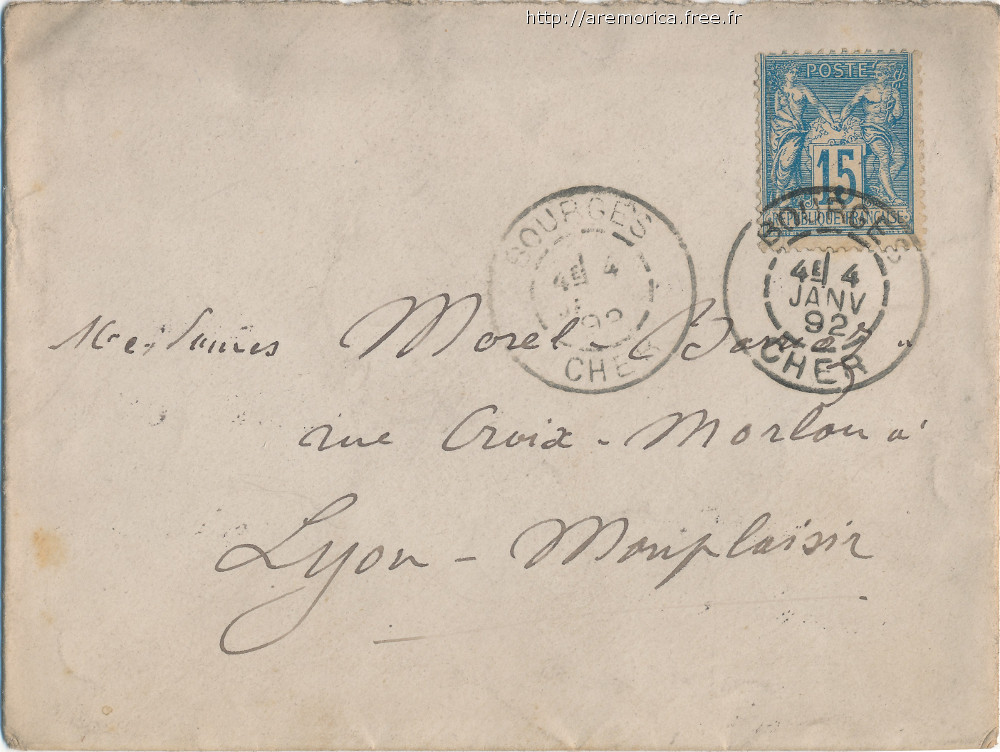 http://aremorica.free.fr
POSTE
15
REPUBLIQUE FRANCAISE
BOURGES
4E 4
92
CHER
BOURGES
4E 4
JANV
92
CHER
Morel
rue Croix-Morlon à
Lyon-Monplaisir